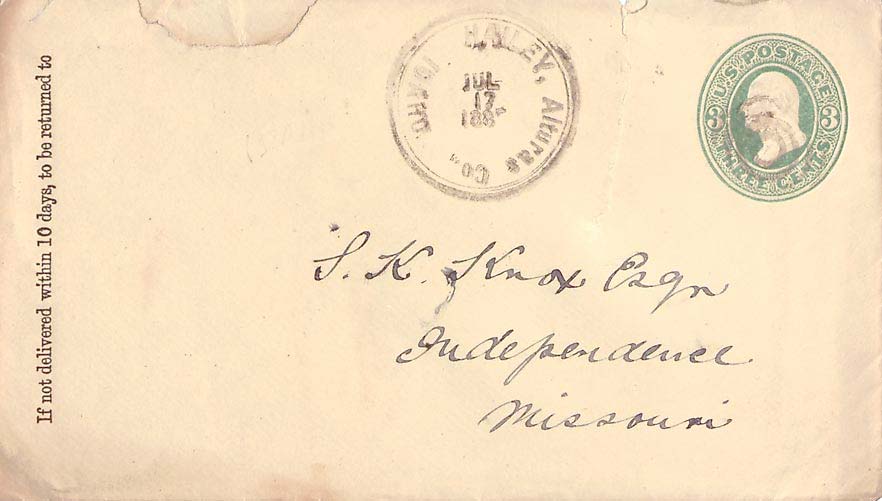 If not delivered within 10 days, to be returned to
HAILEY, Alturas Co., IDAHO
JUL
17
188
U.S. POSTAGE
3 3
THREE CENTS
S. K. Knox Esqr
Independence
Missouri